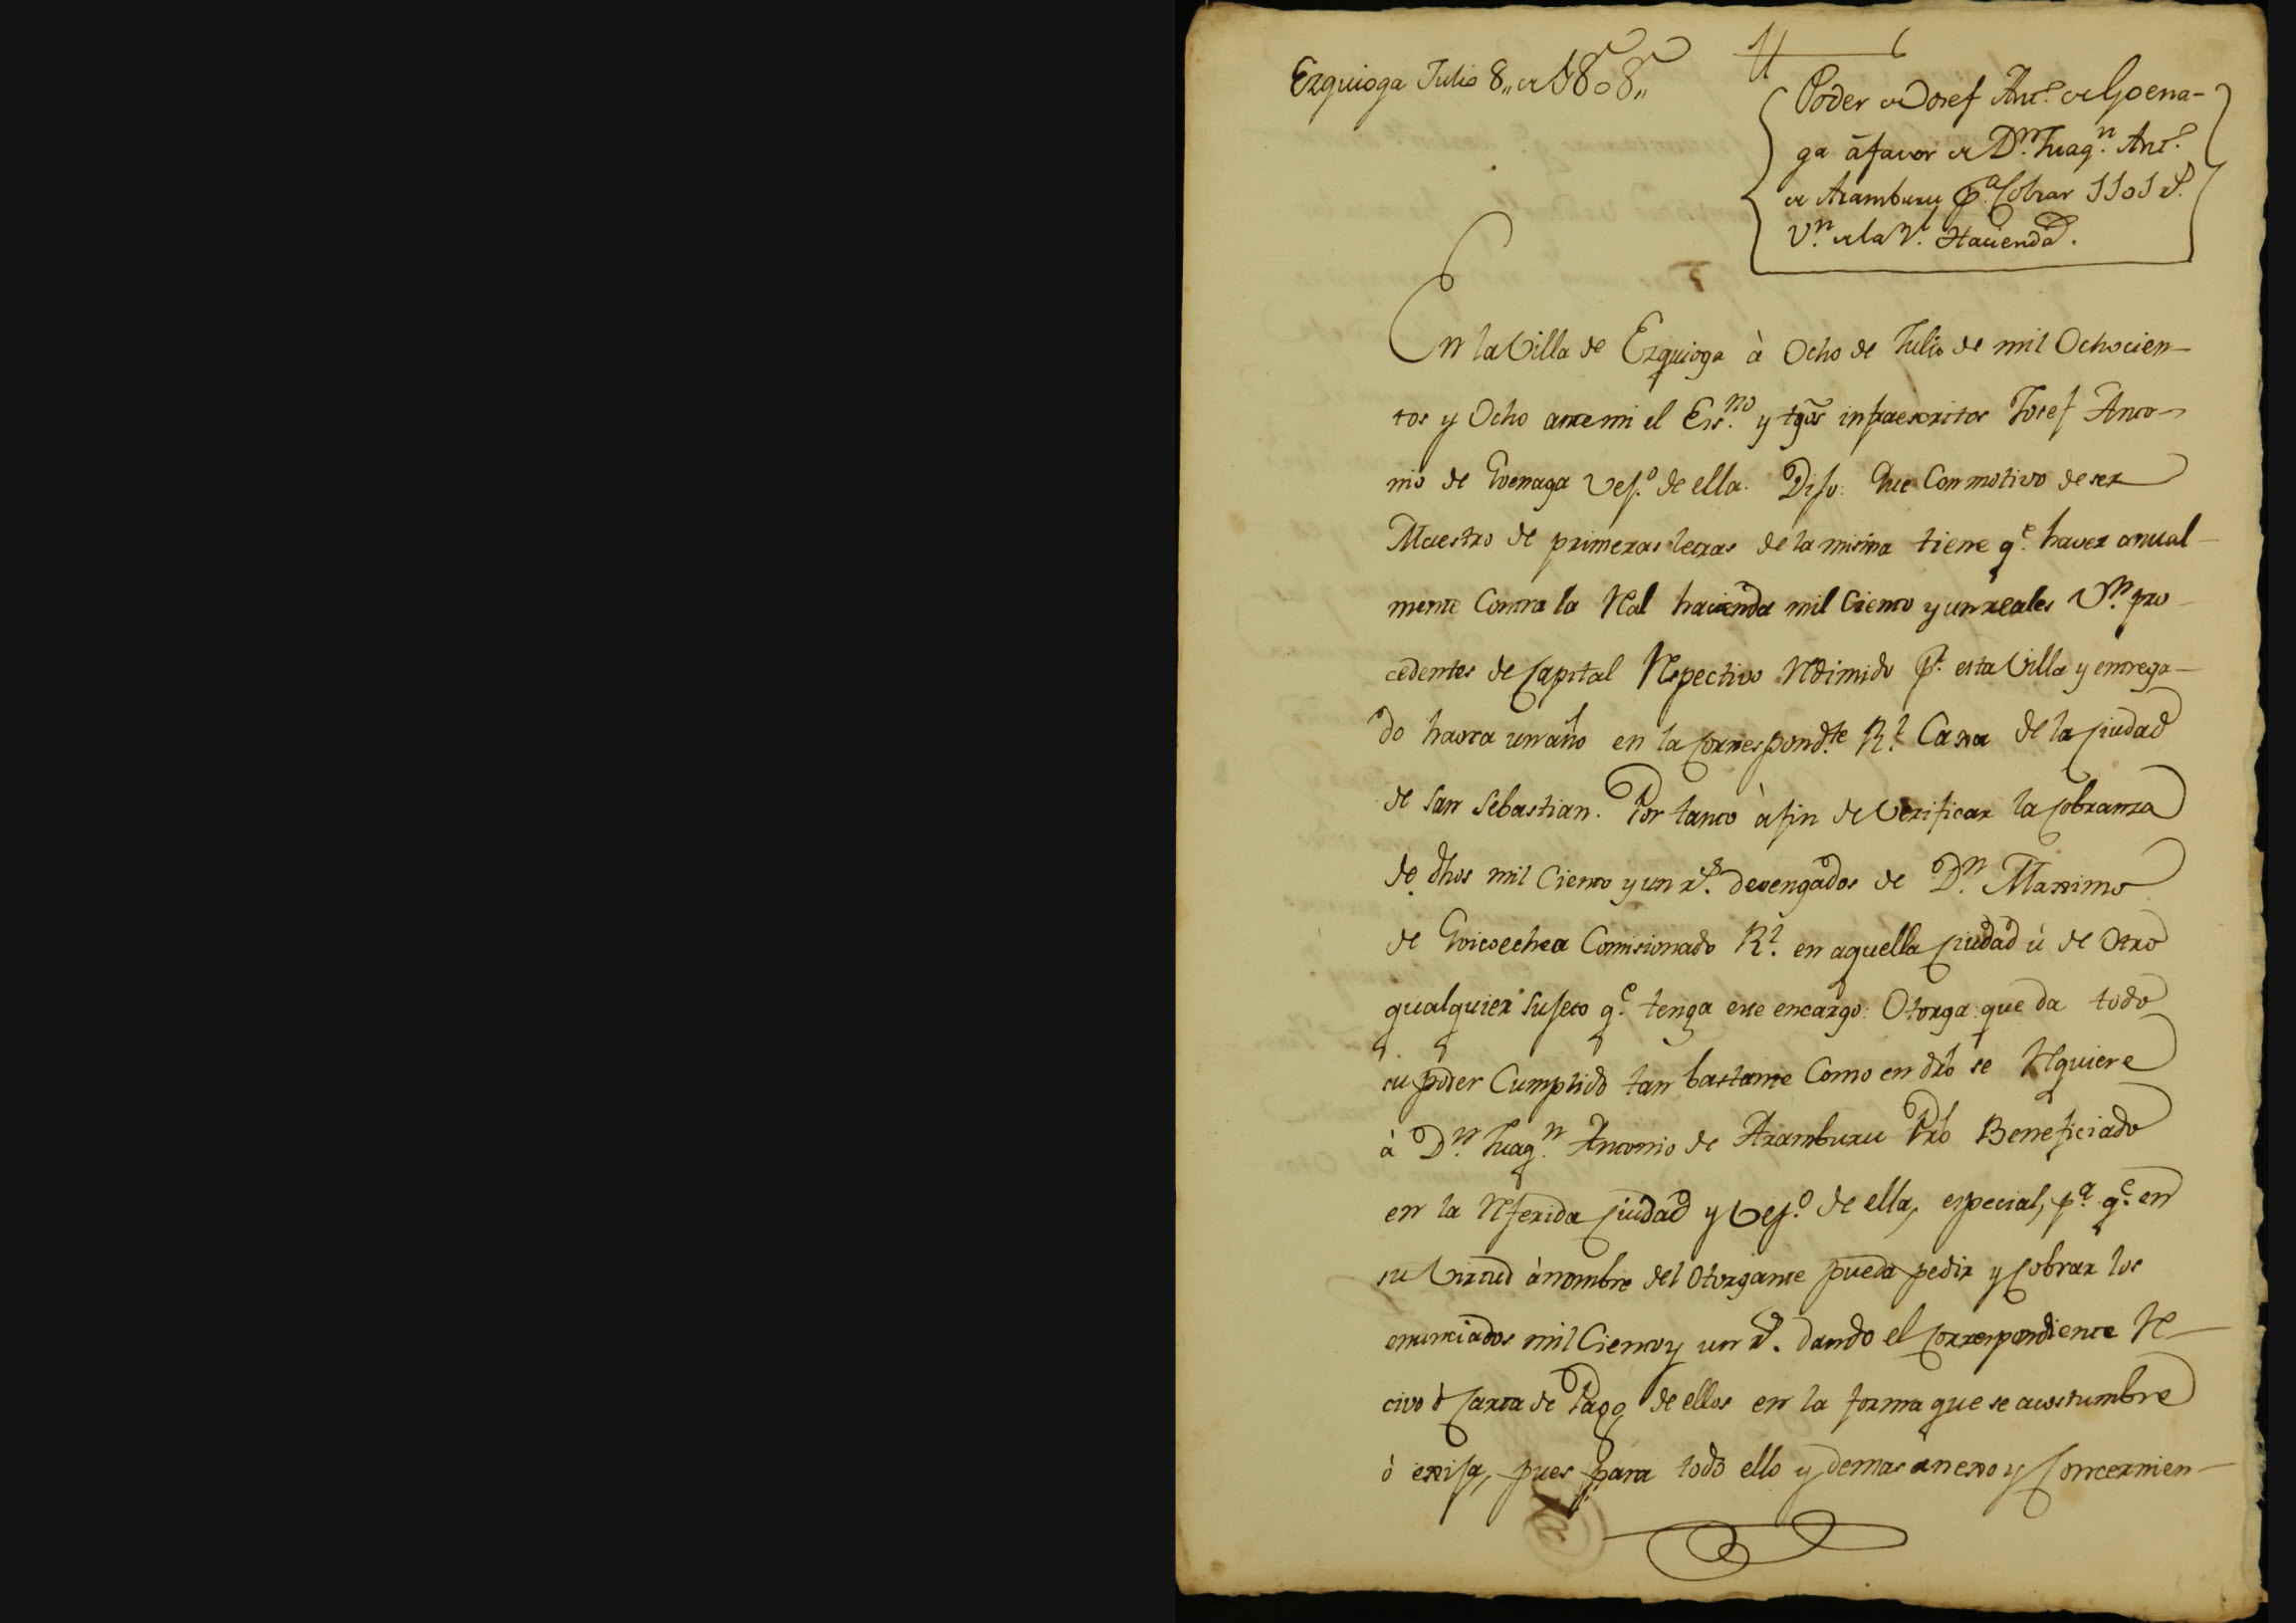 Ezquioga Julio 8,, de 1808,,
Poder de Josef Ant.º de Goena-
ga à favor de D.n Juaq.n Ant.º
de Aramburu p.a Cobrar 1101 r.s
V.n de la R.l Haciendã.
En la Villa de Ezquioga à Ocho de Julio de mil Ochocien-
tos y Ocho ante mi el Ess.no y tgõs infraescritos Josef Anto-
nio de Goenaga veſ.º de ella. Dijo: Que Con motivo de ser
Maestro de primeras letras de la misma tiene q.e haver anual-
mente Contra la Real hacienda mil Ciento y un reales V.n pro-
cedentes de Capital Respectivo Redimido p.r esta Villa y entrega-
do haora un año en la Correspond.te R.l Caxa de la Ciudad
de San Sebastian. Por tanto à fin de Verificar la Cobranza
de dhos mil Ciento y un r.s devengados de D.n Maximo
de Goicoechea Comisionado R.l en aquella Ciudad ù de Otro
qualquier Sujeto q.e tenga ese encargo: Otorga que da todo
su poder Cumplido tan bastante Como en dro se Requiere
à D.n Juaq.n Antonio de Aramburu Pro Beneficiado
en la Referida Ciudad y Vej.º de ella, especial, p.a q.e en
su Virtud à nombre del Otorgante pueda pedir y Cobrar los
enunciados mil Ciento y un r.s dando el Correspondiente Re-
civo ò Carta de Pago de ellos en la forma que se acostumbre
ò exija, pues para todo ello y demas anexo y Concernien-